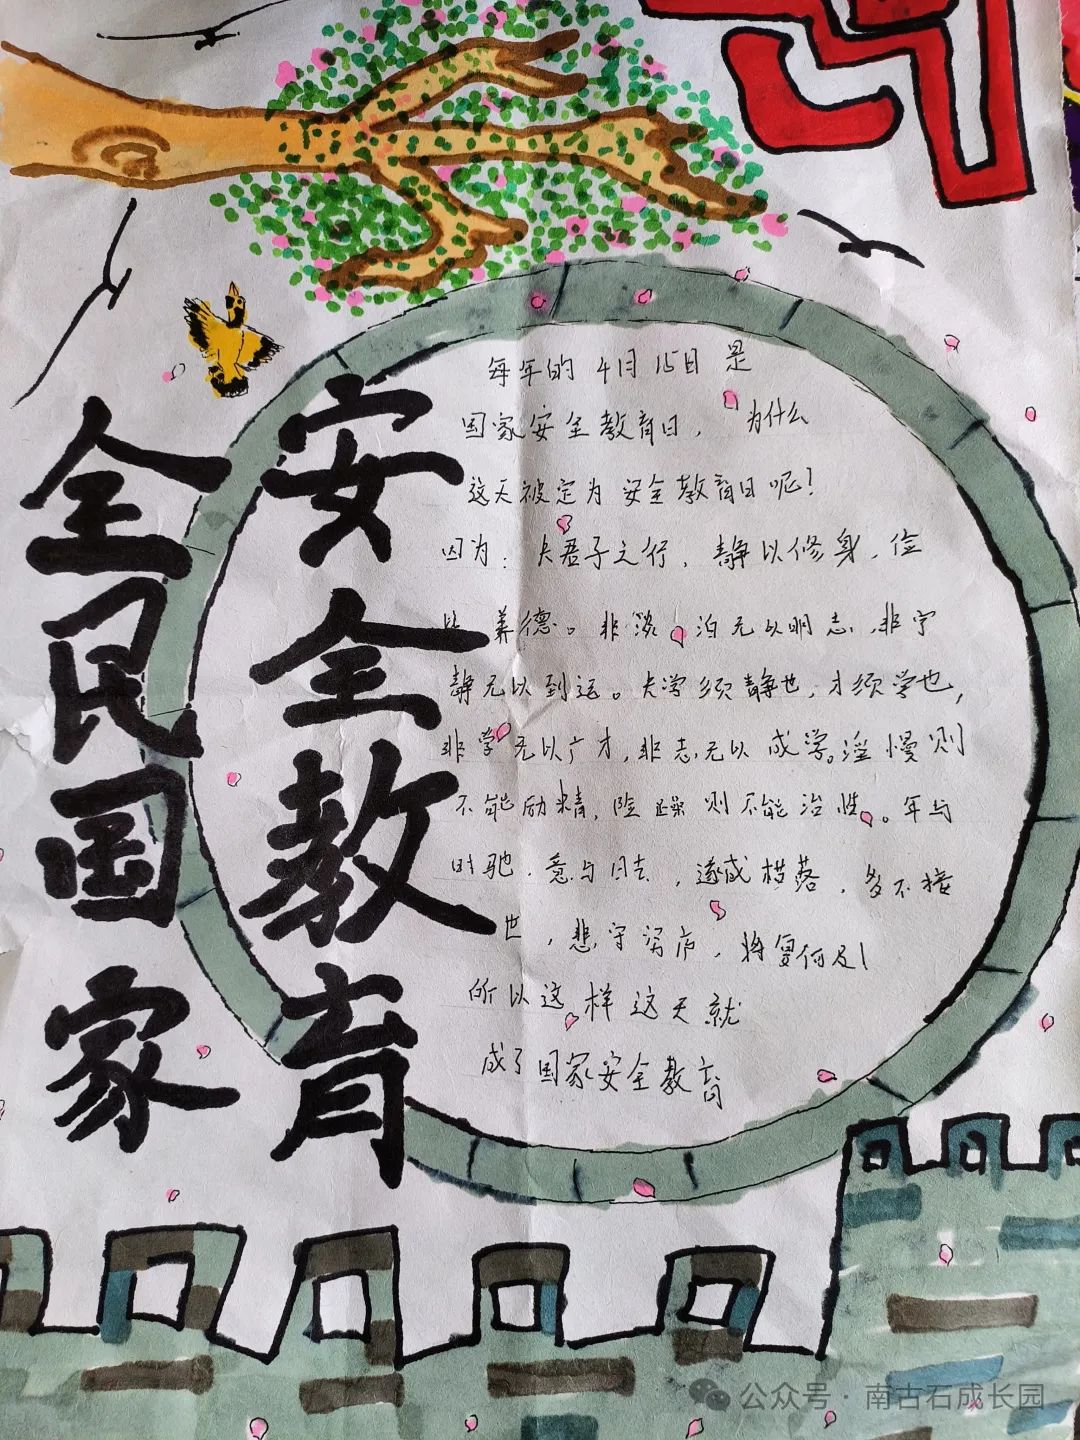 全民国家
安全教育
每年的4月15日是
国家安全教育日，为什么
这天被定为安全教育日呢？
因为：夫君子之行，静以修身，俭
养德。非淡泊无以明志，非宁
静无以到远。夫学须静也，才须学也，
非学无以广才，非志无以成学。淫慢则
不能励精，险躁则不能治性。年与
时驰，意与日去，遂成枯落，多不接
世，悲守穷庐，将复何及！
所以这样这天就
成了国家安全教育
公众号·南古石成长园